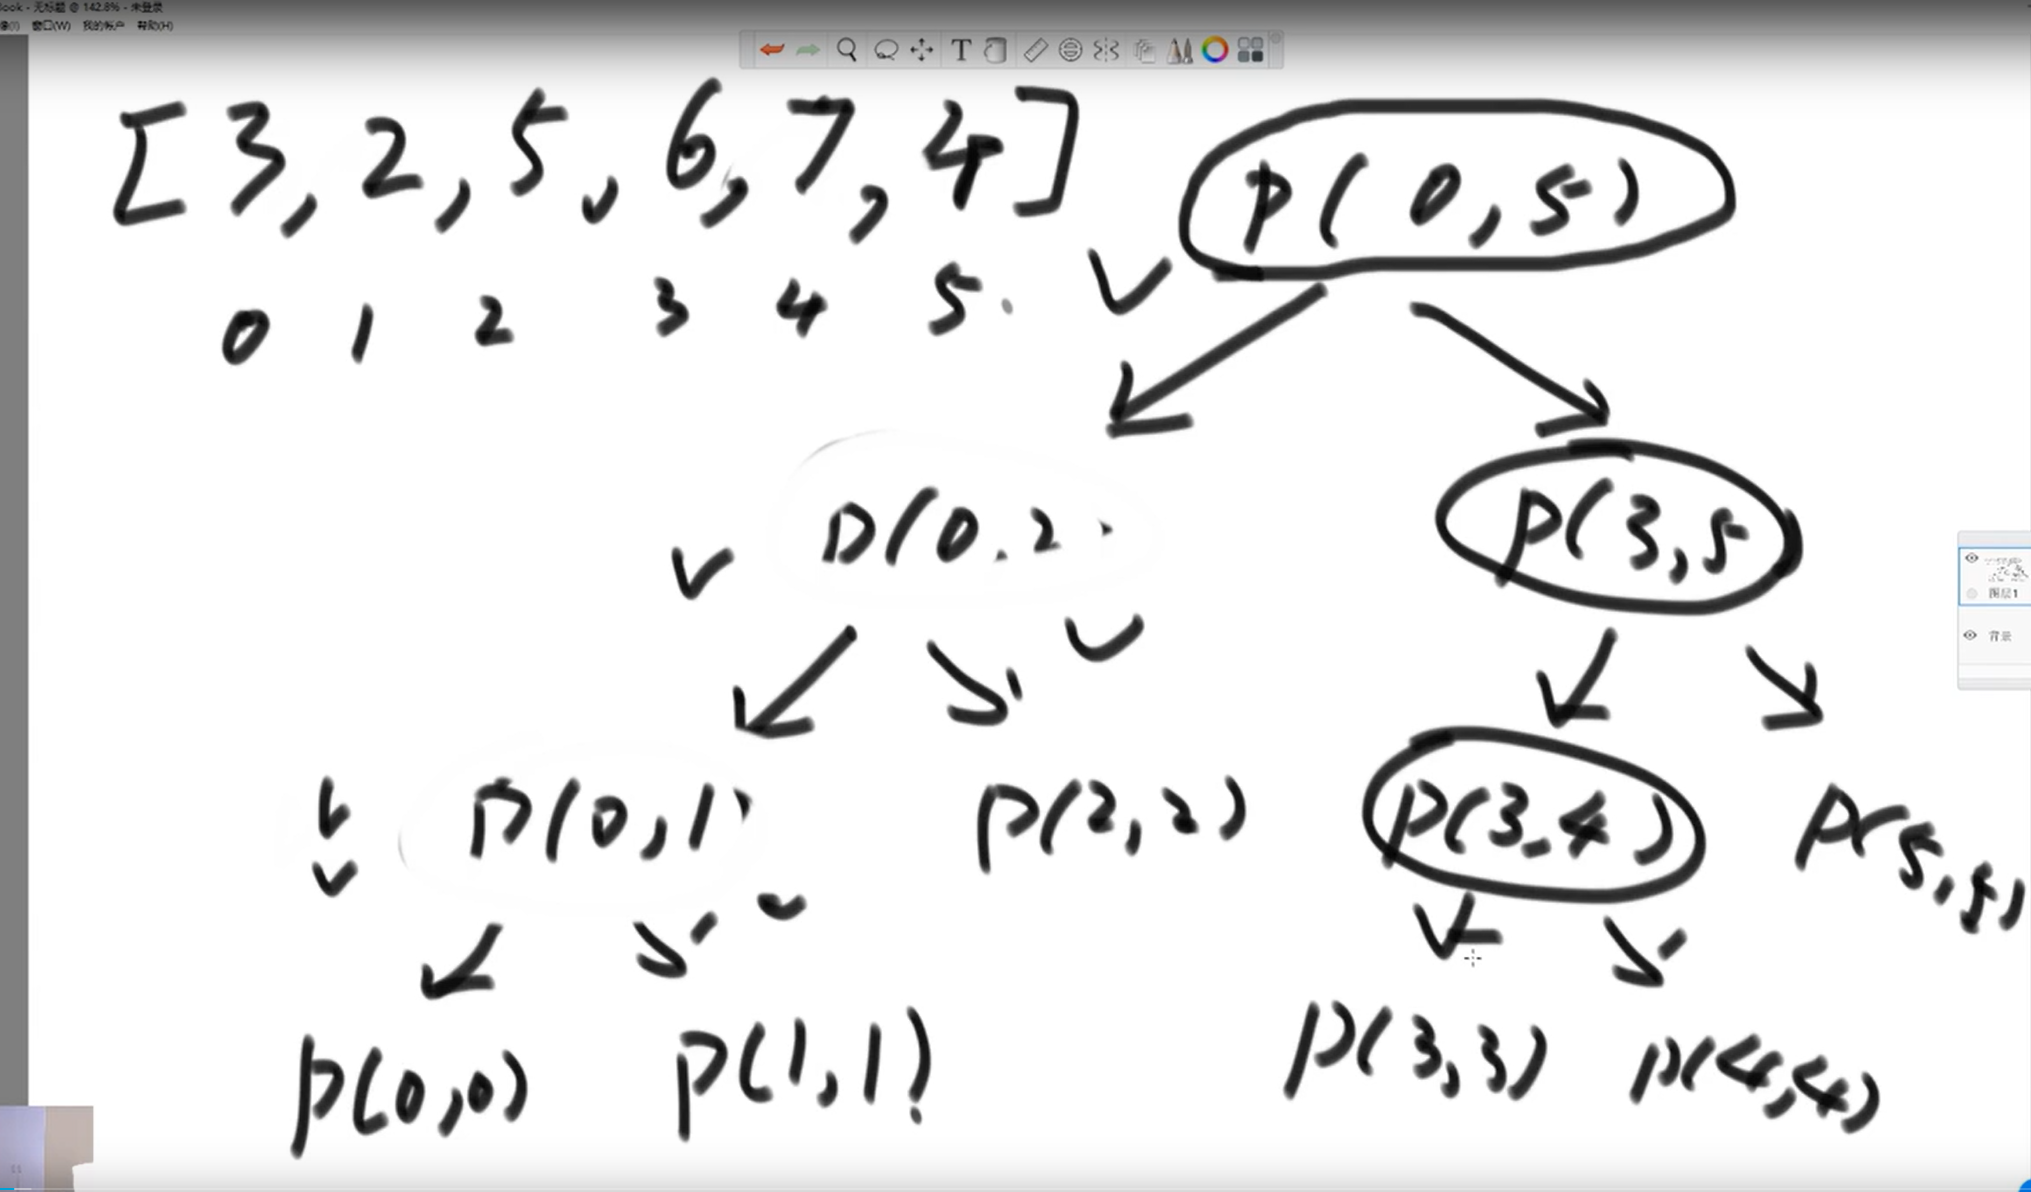 ook - 无标题 @ 142.8% - 未登录
像(I) 窗口(W) 我的帐户 帮助(H)
T
[3, 2, 5, 6, 7, 4]
0 1 2 3 4 5
p(0,5)
p(0,2)
p(3,5
p(0,1)
p(2,2)
p(3,4)
p(5,5)
p(0,0)
p(1,1)
p(3,3)
p(4,4)
图层1
背景